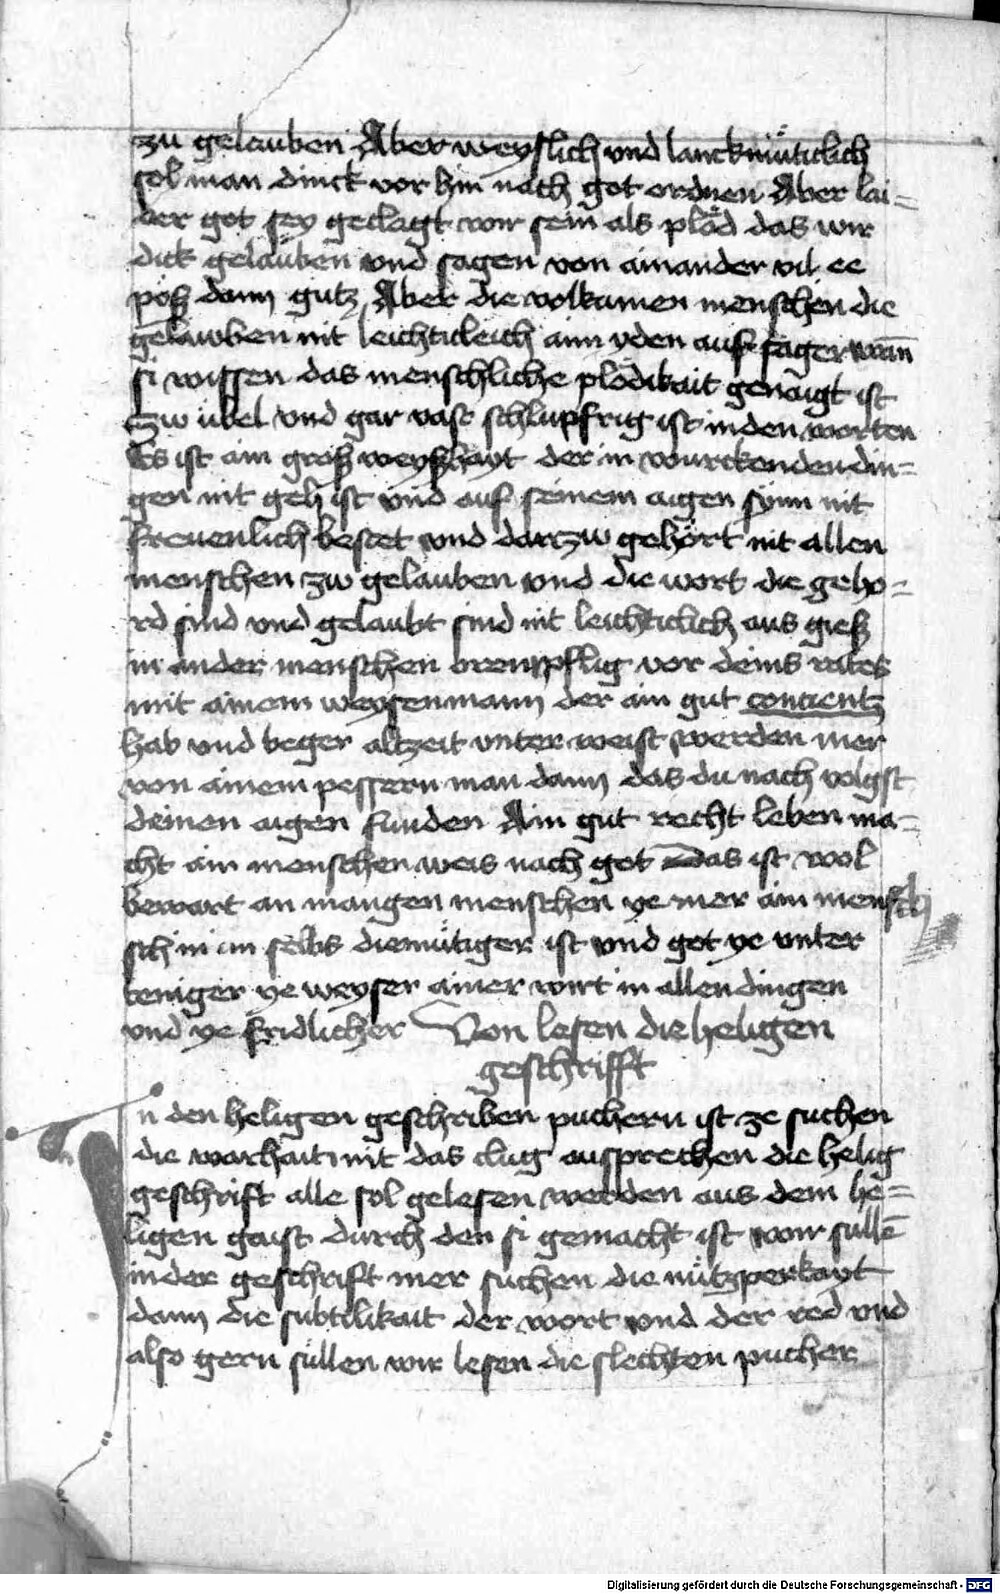 zu gelauben Aber weyslich vnd lanckmüticlich
sol man dinck vor hin nach got ordnen Aber lai=
der got sey geclagt wir sein als plöd das wir
dick gelauben vnd sagen von ainander vil ee
pöß dann gutz Aber die volkumen menschen die
gelawben nit leichticleich aim yden auf sager wan̄
si wissen das menschliche plödikait genaigt ist
zw übel vnd gar vast schlupfrig ist in den worten
Es ist ain groß weyßhayt der in wurckenden din=
gen nit geh ist vnd auf seinem aigen synn nit
freuenlich bestet vnd darzw gehört nit allen
menschen zw gelauben vnd die wort die geho=
rd sind vnd gelaubt sind nit leichticlich aus gieß
in ander menschen oren pflig vor deins rates
mit ainem weysen mann der ain gut concientz
hab vnd beger altzeit vnter weist werden mer
von ainem pessern man dann das du nach volgst
deinen aigen funden Ain gut recht leben ma=
cht ain menschen weis nach got Das ist wol
bewart an mangen menschen ye mer ain mensch
sch in im selbs diemütiger ist vnd got ye vnter
teniger ye weyser ainer wirt in allen dingen
vnd ye fridlicher Von lesen die heligen
geschrifft
In den heligen geschriben puchern ist ze suchen
die warhait nit das clug aussprechen die helig
geschrift alle sol gelesen werden aus dem he=
ligen gaist durch den si gemacht ist wir sullē
in der geschrift mer suchen die nützperkayt
dann die subtilikait der wort vnd der red vnd
also gern süllen wir lesen die slechten pucher
Digitalisierung gefördert durch die Deutsche Forschungsgemeinschaft - DFG